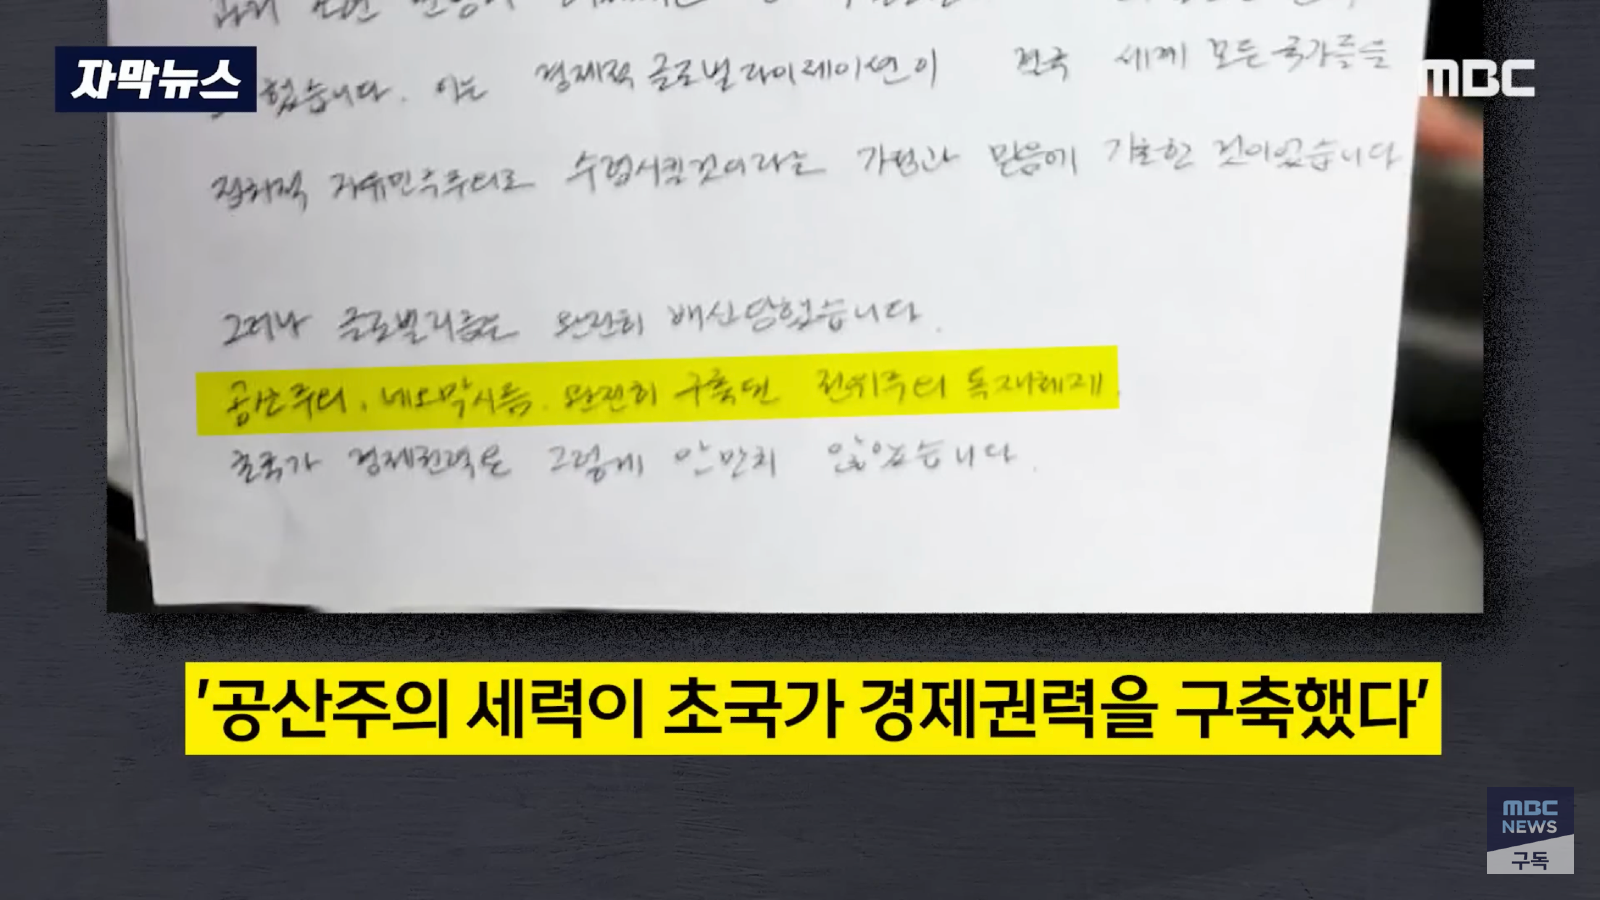 자막뉴스
MBC
했습니다. 이는 경제적 글로벌라이제이션이 전국 세계 모든 국가들을
정치적 자유민주주의로 수렴시킬것이라는 가정과 믿음에 기초한 것이었습니다
그러나 글로벌리즘은 완전히 배신당했습니다.
공산주의, 네오막시즘, 완전히 구축된 전위주의 독재체제.
초국가 경제권력은 그렇게 만치 않았습니다.
'공산주의 세력이 초국가 경제권력을 구축했다'
MBC
NEWS
구독